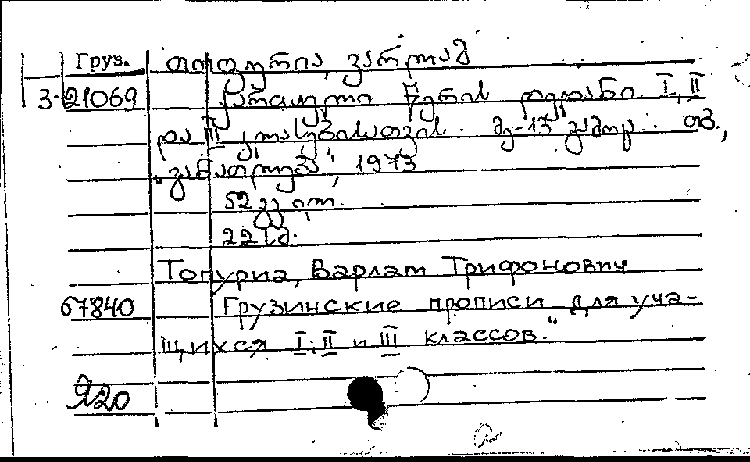 Груз. თოფურია, ვარლამ
3-21069 ქართული წერის დედანი I, II
და III კლასებისათვის. მე-13 გამოც. თბ.,
„განათლება", 1973
52 გვ. ილ.
22 სმ.
Топурия, Варлам Трифонович
67840 Грузинские прописи для уча-
щихся I, II и III классов."
920